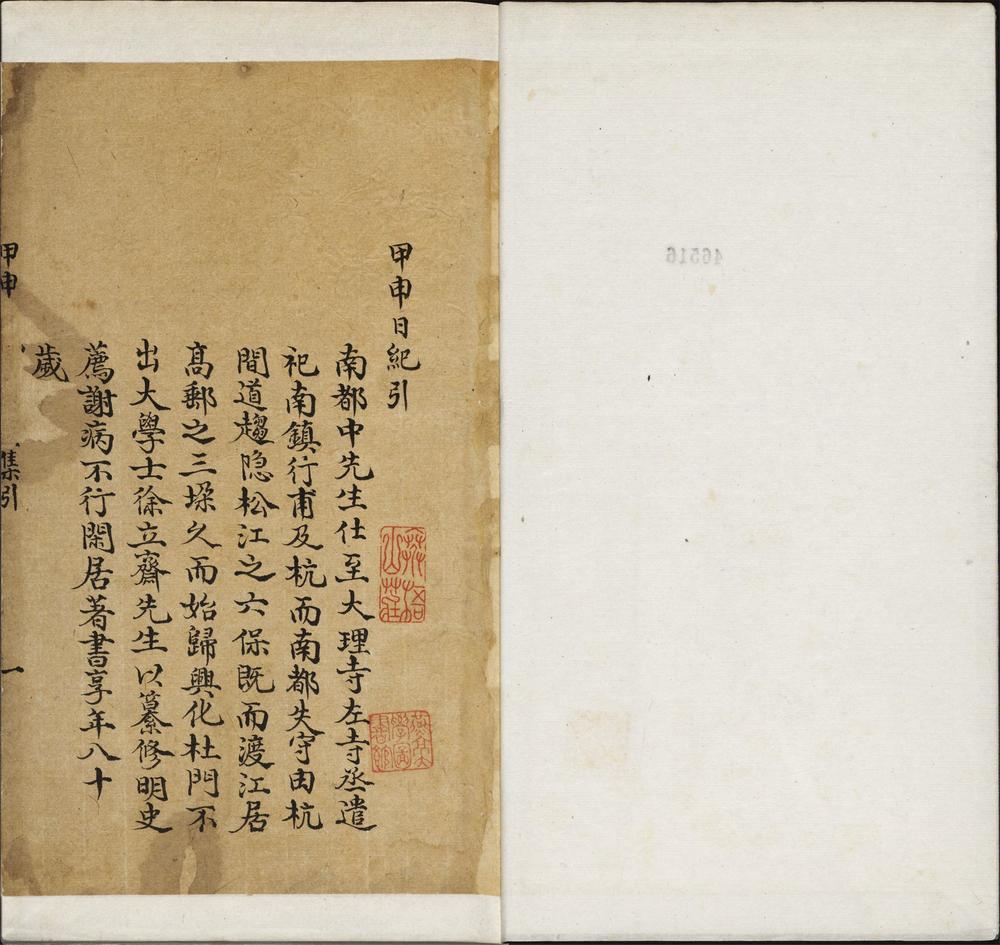 甲申日紀引
南都中先生仕至大理寺左寺丞遣
祀南鎮行甫及杭而南都失守由杭
間道趨隐松江之六保既而渡江居
髙郵之三垜久而始歸興化杜門不
出大學士徐立齋先生以纂修明史
薦謝病不行閑居著書享年八十
歲
甲申
集引
一
46516